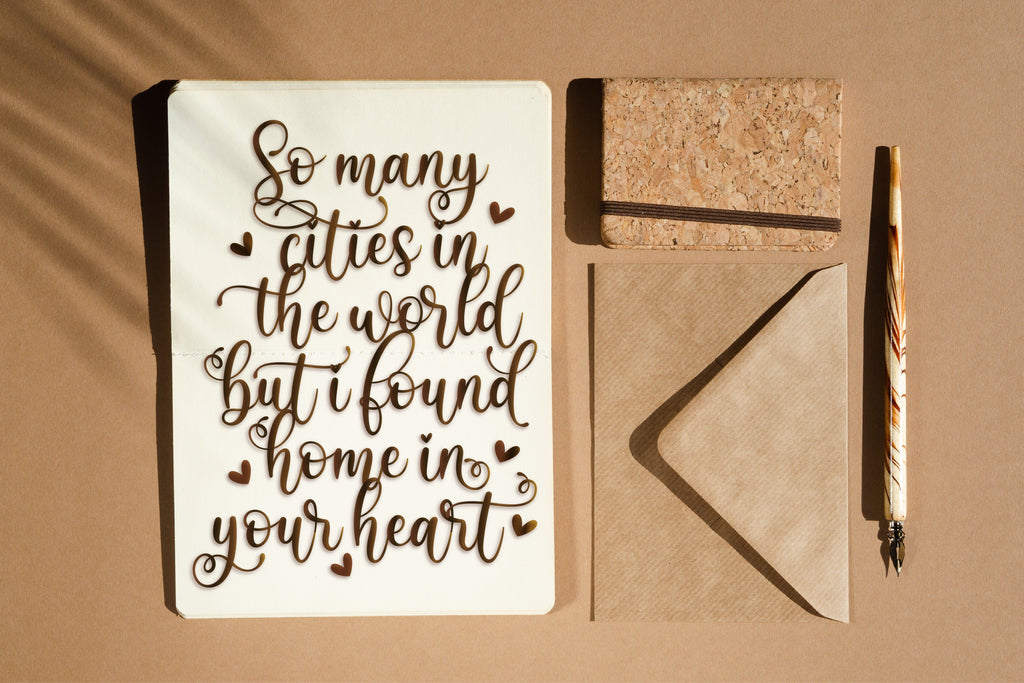 So many
cities in
the world
but i found
home in
your heart